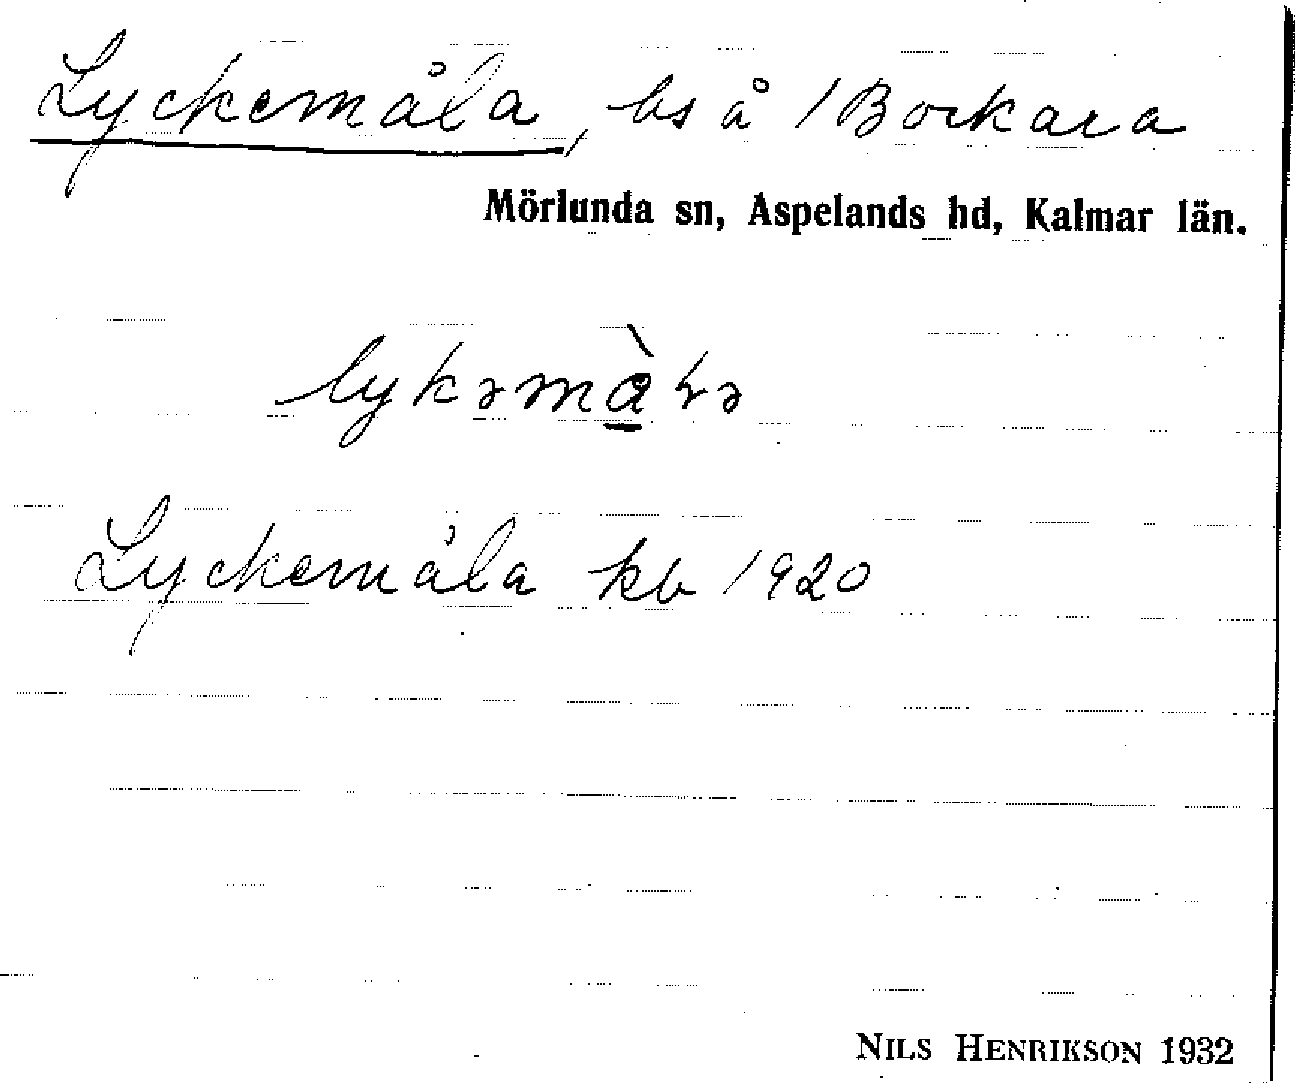 Lyckemåla, bs å 1 Bockara
Mörlunda sn, Aspelands hd, Kalmar län.
lykəmàɽə
Lyckemåla kb 1920
NILS HENRIKSON 1932